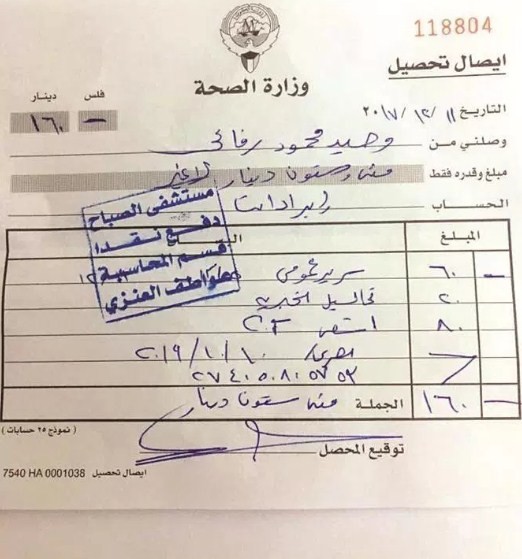 118804
ايصال تحصيل
وزارة الصحة
فلس دينار
— ١٦٠
التاريخ ١١/ ١٢/ ٢٠١٧
وصلني من وحيد محمود رفاعي
مبلغ وقدره فقط مئة وستون دينار لاغير
الحساب إيرادات
مستشفى الصباح
دفع نقدا
قسم المحاسبة
عواطف العنزي
المبلغ
٦٠ — سرير عمومي
٢٠ تحاليل
٨٠
٢٠١٩/١٠/١٠
٢٧٤٠٥٠٨٠٥٧٥٣
١٦٠ — الجملة مئة ستون دينار
( نموذج ٢٥ حسابات )
توقيع المحصل
7540 HA 0001038 ايصال تحصيل